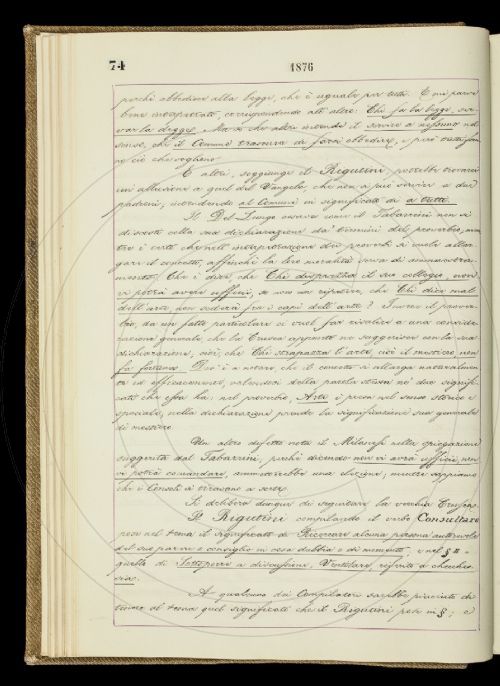 74
1876
perchè obbedisce alla legge, che è uguale per tutti. E mi pare
bene interpretato, corrispondendo all'altro: Chi fa la legge, ser-
var la degge. Ma a che altri intende il servire a nessuno nel
senso, che il Comune trascura di farsi obbedire, e però ciascun
fa ciò che vogliono
E altri, soggiunge il Rigutini, potrebbe trovarci
un'allusione a quel del Vangelo, che non si può servire a due
padroni, intendendo al Comune in significato di a tutti.
Il Del Lungo osserva come il Tabarrini non si
discosti colla sua dichiarazione da' termini del proverbio, men-
tre è certo che nell'interpretazione dei proverbi si vuole allar-
gare il concetto, affinchè la loro moralità serva di ammaestra-
mento. Che è dire, che Chi disprezza il suo collegio, non
vi potrà avere uffici, se non un ripetere, che Chi dice mal
dell'arte, non sederà fra i capi dell'arte? Invece il prover-
bio, da un fatto particolare ci vuol far risalire a una conside-
razione generale, che la Crusca appunto ne suggerisce con la sua
dichiarazione, cioè, che Chi strapazza l'arte, cioè il mestiere, non
fa fortuna. Poi è a notare, che il concetto si allarga naturalmen-
te ed efficacemente, valendosi della parola stessa ne' due signifi-
cati che essa ha; nel proverbio, Arte è presa nel senso storico e
speciale, nella dichiarazione prende la significazione sua generale
di mestiere.
Un altro difetto nota il Milanesi nella spiegazione
suggerita dal Tabarrini, perchè dicendo non vi avrà uffici, non
vi potrà comandare, ammetterebbe una elezione; mentre sappiamo
che i Consoli si traevano a sorte.
Si delibera dunque di seguitare la vecchia Crusca.
Il Rigutini compilando il verbo Consultare
pose nel tema il significato di Ricercare alcuna persona autorevole
del suo parere o consiglio in cosa dubbia o di momento, e nel § II
quello di Sottoporre a discussione, Ventilare, riferito a checches-
sia.
A qualcuno dei Compilatori sarebbe piaciuto di
tirare al tema quel significato che il Rigutini pose in §; e